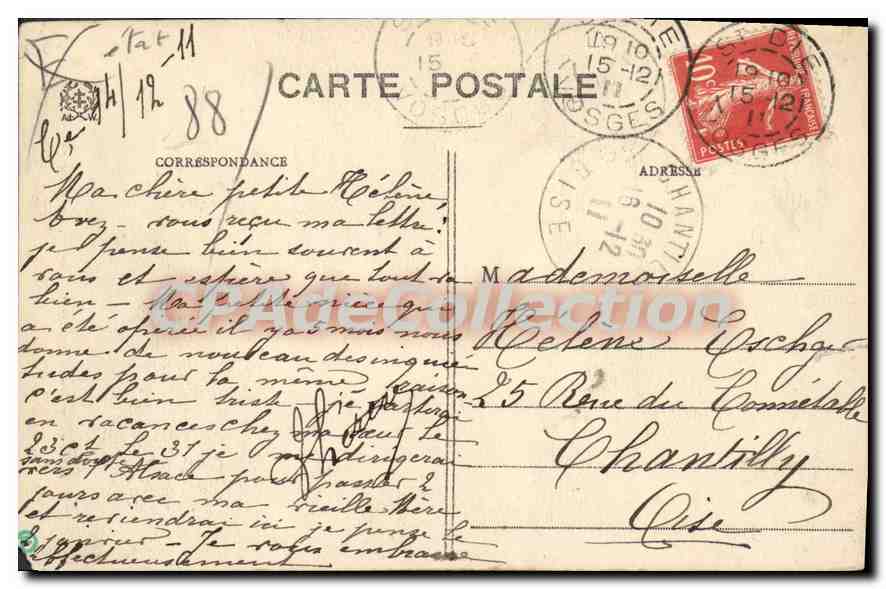 14/12 - 11
88
CARTE POSTALE
CORRESPONDANCE
Ma chère petite Hélène,
Avez-vous reçu ma lettre?
je pense bien souvent à
vous et espère que tout va
bien - Ma petite nièce qui
a été opérée il y a 5 mois nous
donne de nouveau des inquié
tudes pour la même raison
c'est bien triste - je partirai
en vacances chez ma sœur le
23 ct le 31 je me dirigerai
sans doute
vers l'Alsace pour passer 2
jours avec ma vieille Mère
et reviendrai ici je pense le
2 janvier - Je vous embrasse
affectueusement
ADRESSE
Mademoiselle
Hélène
25 Rue du Connétable
Chantilly
Oise
ST DIE
19 10
15-12
11
VOSGES
ST DIE
19 10
15-12
11
VOSGES
CHANTILLY
10 30
16-12
11
OISE
POSTES
10
CPAdeCollection